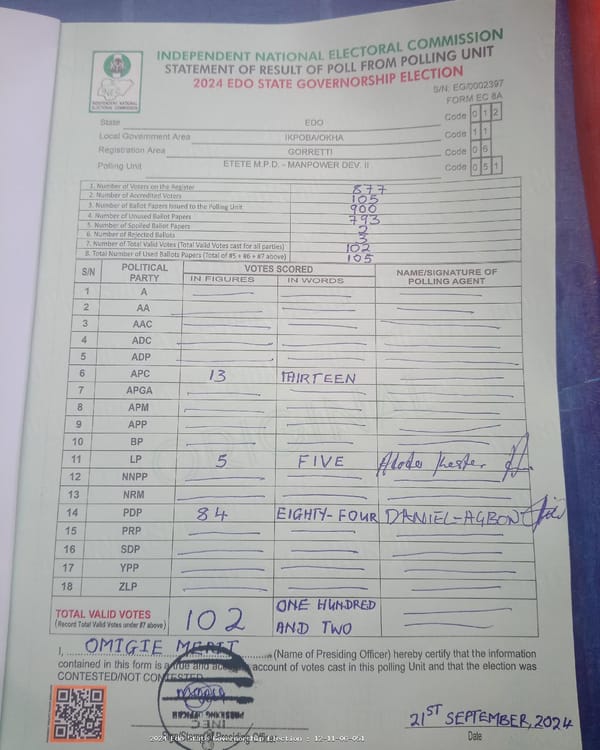 INDEPENDENT NATIONAL ELECTORAL COMMISSION
STATEMENT OF RESULT OF POLL FROM POLLING UNIT
2024 EDO STATE GOVERNORSHIP ELECTION
INEC
INDEPENDENT NATIONAL
ELECTORAL COMMISSION
S/N: EG/0002397
FORM EC 8A
State EDO Code 0 1 2
Local Government Area IKPOBA/OKHA Code 1 1
Registration Area GORRETTI Code 0 6
Polling Unit ETETE M.P.D. - MANPOWER DEV. II Code 0 5 1
1. Number of Voters on the Register 877
2. Number of Accredited Voters 105
3. Number of Ballot Papers Issued to the Polling Unit 900
4. Number of Unused Ballot Papers 793
5. Number of Spoiled Ballot Papers 2
6. Number of Rejected Ballots 3
7. Number of Total Valid Votes (Total Valid Votes cast for all parties) 102
8. Total Number of Used Ballots Papers (Total of #5 + #6 + #7 above) 105
S/N POLITICAL PARTY VOTES SCORED NAME/SIGNATURE OF POLLING AGENT
IN FIGURES IN WORDS
1 A
2 AA
3 AAC
4 ADC
5 ADP
6 APC 13 THIRTEEN
7 APGA
8 APM
9 APP
10 BP
11 LP 5 FIVE
12 NNPP
13 NRM
14 PDP 84 EIGHTY-FOUR DANIEL-AGBON
15 PRP
16 SDP
17 YPP
18 ZLP
TOTAL VALID VOTES 102 ONE HUNDRED
(Record Total Valid Votes under #7 above) AND TWO
I, OMIGIE MERIT (Name of Presiding Officer) hereby certify that the information
contained in this form is a true and account of votes cast in this polling Unit and that the election was
CONTESTED/NOT CONTESTED
INEC
PRESIDING OFFICER
21ST SEPTEMBER, 2024
Date
2024 Edo State Governorship Election : 12-11-06-051